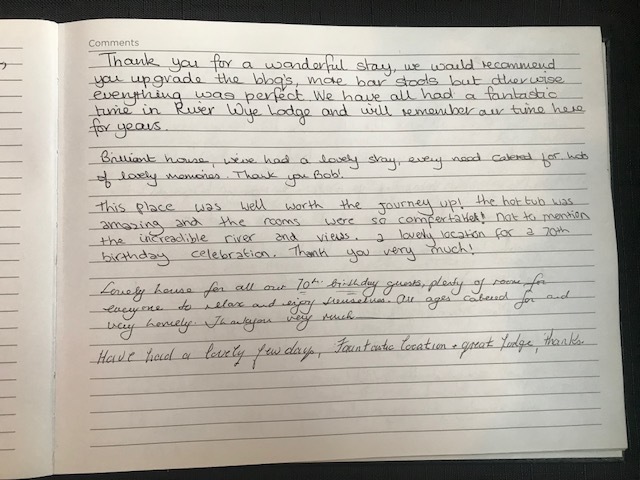 Comments
Thank you for a wonderful stay, we would recommend
you upgrade the bbq's, more bar stools but otherwise
everything was perfect. We have all had a fantastic
time in River Wye Lodge and will remember our time here
for years.
Brilliant house, we've had a lovely stay, every need catered for. lots
of lovely memories. Thank you Bob!
This place was well worth the journey up! the hot tub was
amazing and the rooms were so comfertable! Not to mention
the increadible river and views. a lovely location for a 70th
birthday celebration. Thank you very much!
Lovely house for all our 70th birthday guests, plenty of room for
everyone to relax and enjoy themselves. All ages catered for and
very homely. Thankyou very much
Have had a lovely few days, Fauntastic location + great lodge, thanks.